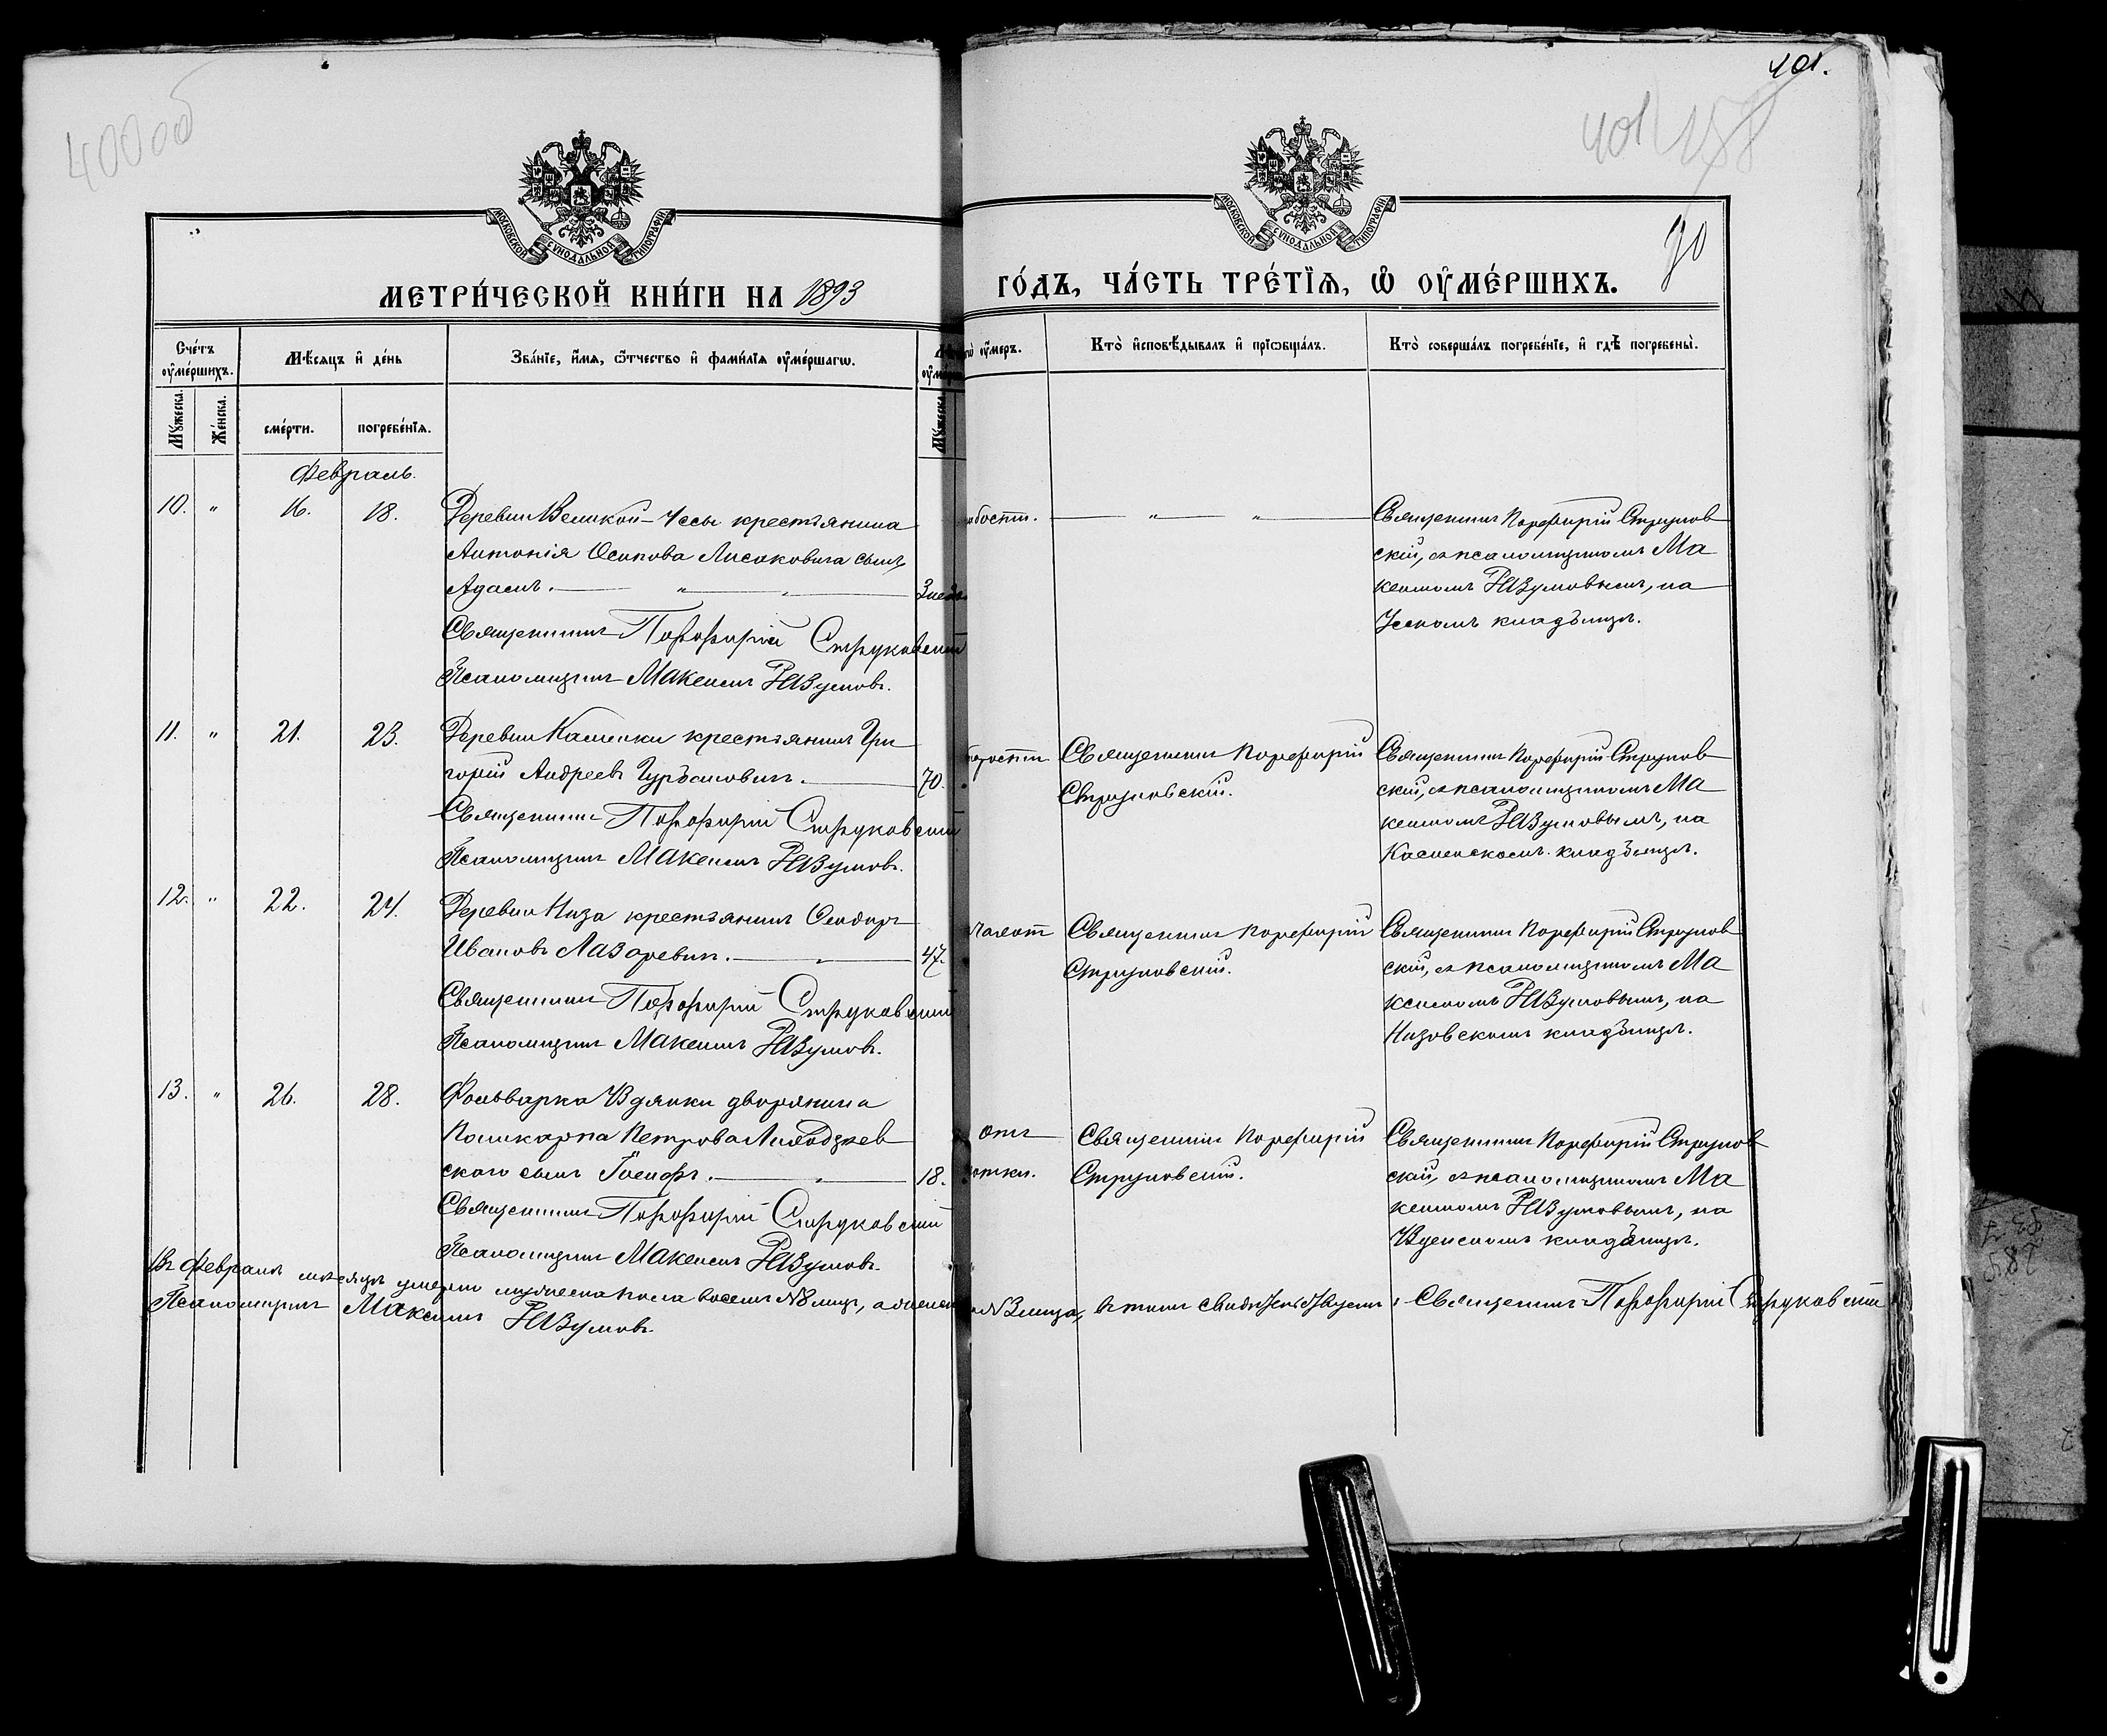 400 об
401.
401
90
МОСКОВСКОЙ СѴНОДАЛЬНОЙ ТИПОГРАФІИ
МОСКОВСКОЙ СѴНОДАЛЬНОЙ ТИПОГРАФІИ
МЕТРИ́ЧЕСКОЙ КНИ́ГИ НА 1893
ГО́ДЪ, ЧА́СТЬ ТРЕ́ТЇѦ, Ѽ ОУ҆МЕ́РШИХЪ.
Сче́тъ оу҆ме́ршихъ.
Мѣ́сяцъ и҆ де́нь
Зва́нїе, и҆́мѧ, ѻ҆́тчество и҆ фами́лїѧ оу҆ме́ршагѡ.
оу҆́меръ.
Кто̀ и҆сповѣ́дывалъ и҆ прїѡбща́лъ.
Кто̀ соверша́лъ погребе́нїе, и҆ гдѣ̀ погребены̀.
Мꙋ́жеска.
Же́нска.
сме́рти.
погребе́нїѧ.
Мꙋ́жеска
Февраль.
10. " 16. 18. Деревни Великой-Уссы крестьянина
Антонія Осипова Лисаковича сынъ
Адамъ. — " — " — 3 нед
Священникъ Порфирій Струковскій
Псаломщикъ Максимъ Наумовъ.
бост. — " — " —
Священникъ Порфирій Струков
скій, съ псаломщикомъ Ма
ксимомъ Наумовымъ, на
Усскомъ кладбищѣ.
11. " 21. 23. Деревни Каменки крестьянинъ Гри
горій Андреевъ Гурбановичъ. — 70.
Священникъ Порфирій Струковскій
Псаломщикъ Максимъ Наумовъ.
Священникъ Порфирій
Струковскій.
Священникъ Порфирій Струков
скій, съ псаломщикомъ Ма
ксимомъ Наумовымъ, на
Каменскомъ кладбищѣ.
12. " 22. 24. Деревни Низа крестьянинъ Ѳеодоръ
Ивановъ Лазаревичъ. — " — 47.
Священникъ Порфирій Струковскій
Псаломщикъ Максимъ Наумовъ.
Священникъ Порфирій
Струковскій.
Священникъ Порфирій Струков
скій, съ псаломщикомъ Ма
ксимомъ Наумовымъ, на
Низовскомъ кладбищѣ.
13. " 26. 28. Фольварка дворянина
Поликарпа Петрова
скаго сынъ Іосифъ. — " — 18.
Священникъ Порфирій Струковскій
Псаломщикъ Максимъ Наумовъ.
отъ
Священникъ Порфирій
Струковскій.
Священникъ Порфирій Струков
скій, съ псаломщикомъ Ма
ксимомъ Наумовымъ, на
кладбищѣ.
Въ Февралѣ мѣсяцѣ умерло мужеска пола восемь №8 лицъ, а женска №3 лица, въ томъ свидѣтельствуемъ: Священникъ Порфирій Струковскій
Псаломщикъ Максимъ Наумовъ.